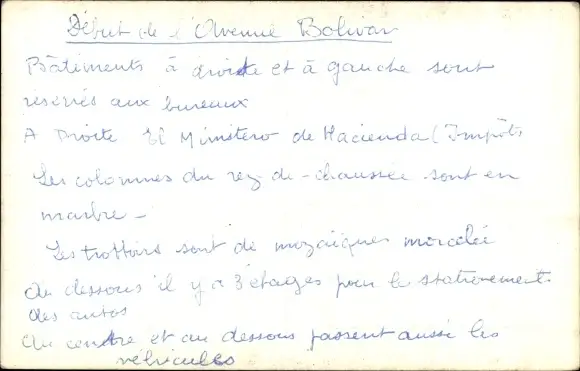 Début de l'Avenue Bolivar
Bâtiments à droite et à gauche sont
réservés aux bureaux
A Droite El Ministero de Hacienda (Impôts
Les colonnes du rez-de-chaussée sont en
marbre -
Les trottoirs sont de mozaïques morcelée
Au dessous il y a 3 étages pour le stationement
des autos
Au centre et au dessous passent aussi les
véhicules